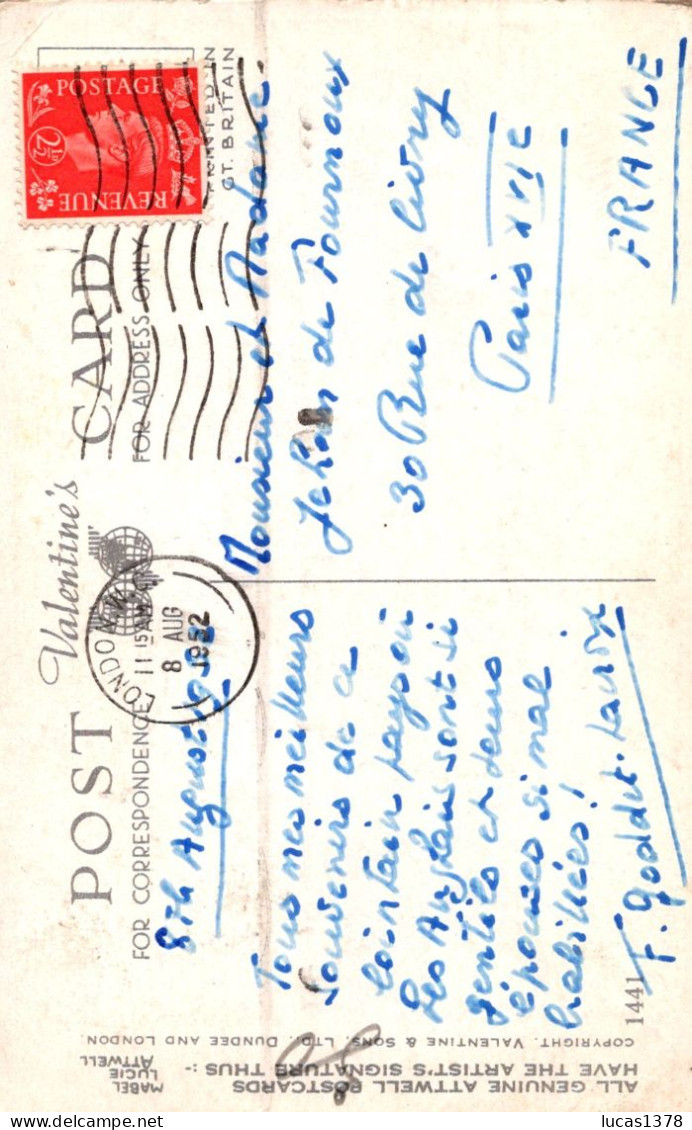 POST Valentine's CARD
FOR CORRESPONDENCE
FOR ADDRESS ONLY
PRINTED IN
GT. BRITAIN
POSTAGE
2½D
REVENUE
LONDON N.W.
11 15 AM
8 AUG
1952
8th August 1952
Tous mes meilleurs
souvenirs de ce
lointain pays où
les Anglais sont si
gentils et leurs
épouses si mal
habillées!
F. Goddet
1441
Monsieur et Madame
Jehan de Fournoux
30 Rue de Civry
Paris XVIe
FRANCE
ALL GENUINE ATTWELL POSTCARDS
HAVE THE ARTIST'S SIGNATURE THUS :-
MABEL
LUCIE
ATTWELL
COPYRIGHT. VALENTINE & SONS, LTD. DUNDEE AND LONDON.
delcampe.net
lucas1378